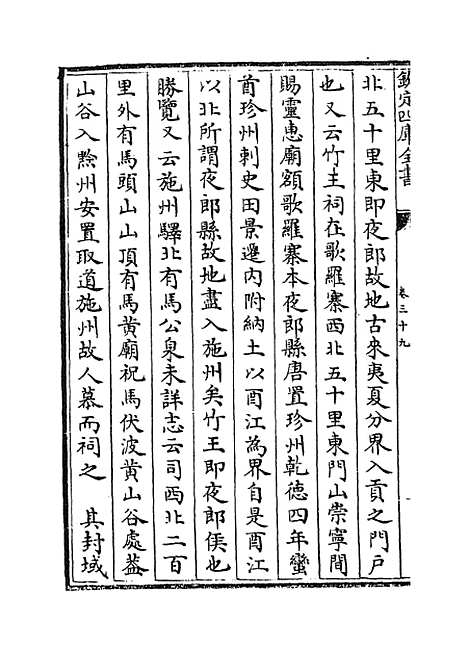 欽定四庫全書
卷三十九
北五十里東即夜郎故地古來夷夏分界入貢之門戶
也又云竹王祠在歌羅寨西北五十里東門山崇寧間
賜靈惠廟額歌羅寨本夜郎縣唐置珍州乾德四年蠻
首珍州刺史田景遷内附納土以酉江為界自是酉江
以北所謂夜郎縣故地盡入施州矣竹王即夜郎侯也
勝覽又云施州驛北有馬公泉未詳志云司西北二百
里外有馬頭山山頂有馬黃廟祝馬伏波黃山谷處葢
山谷入黔州安置取道施州故人慕而祠之　其封域